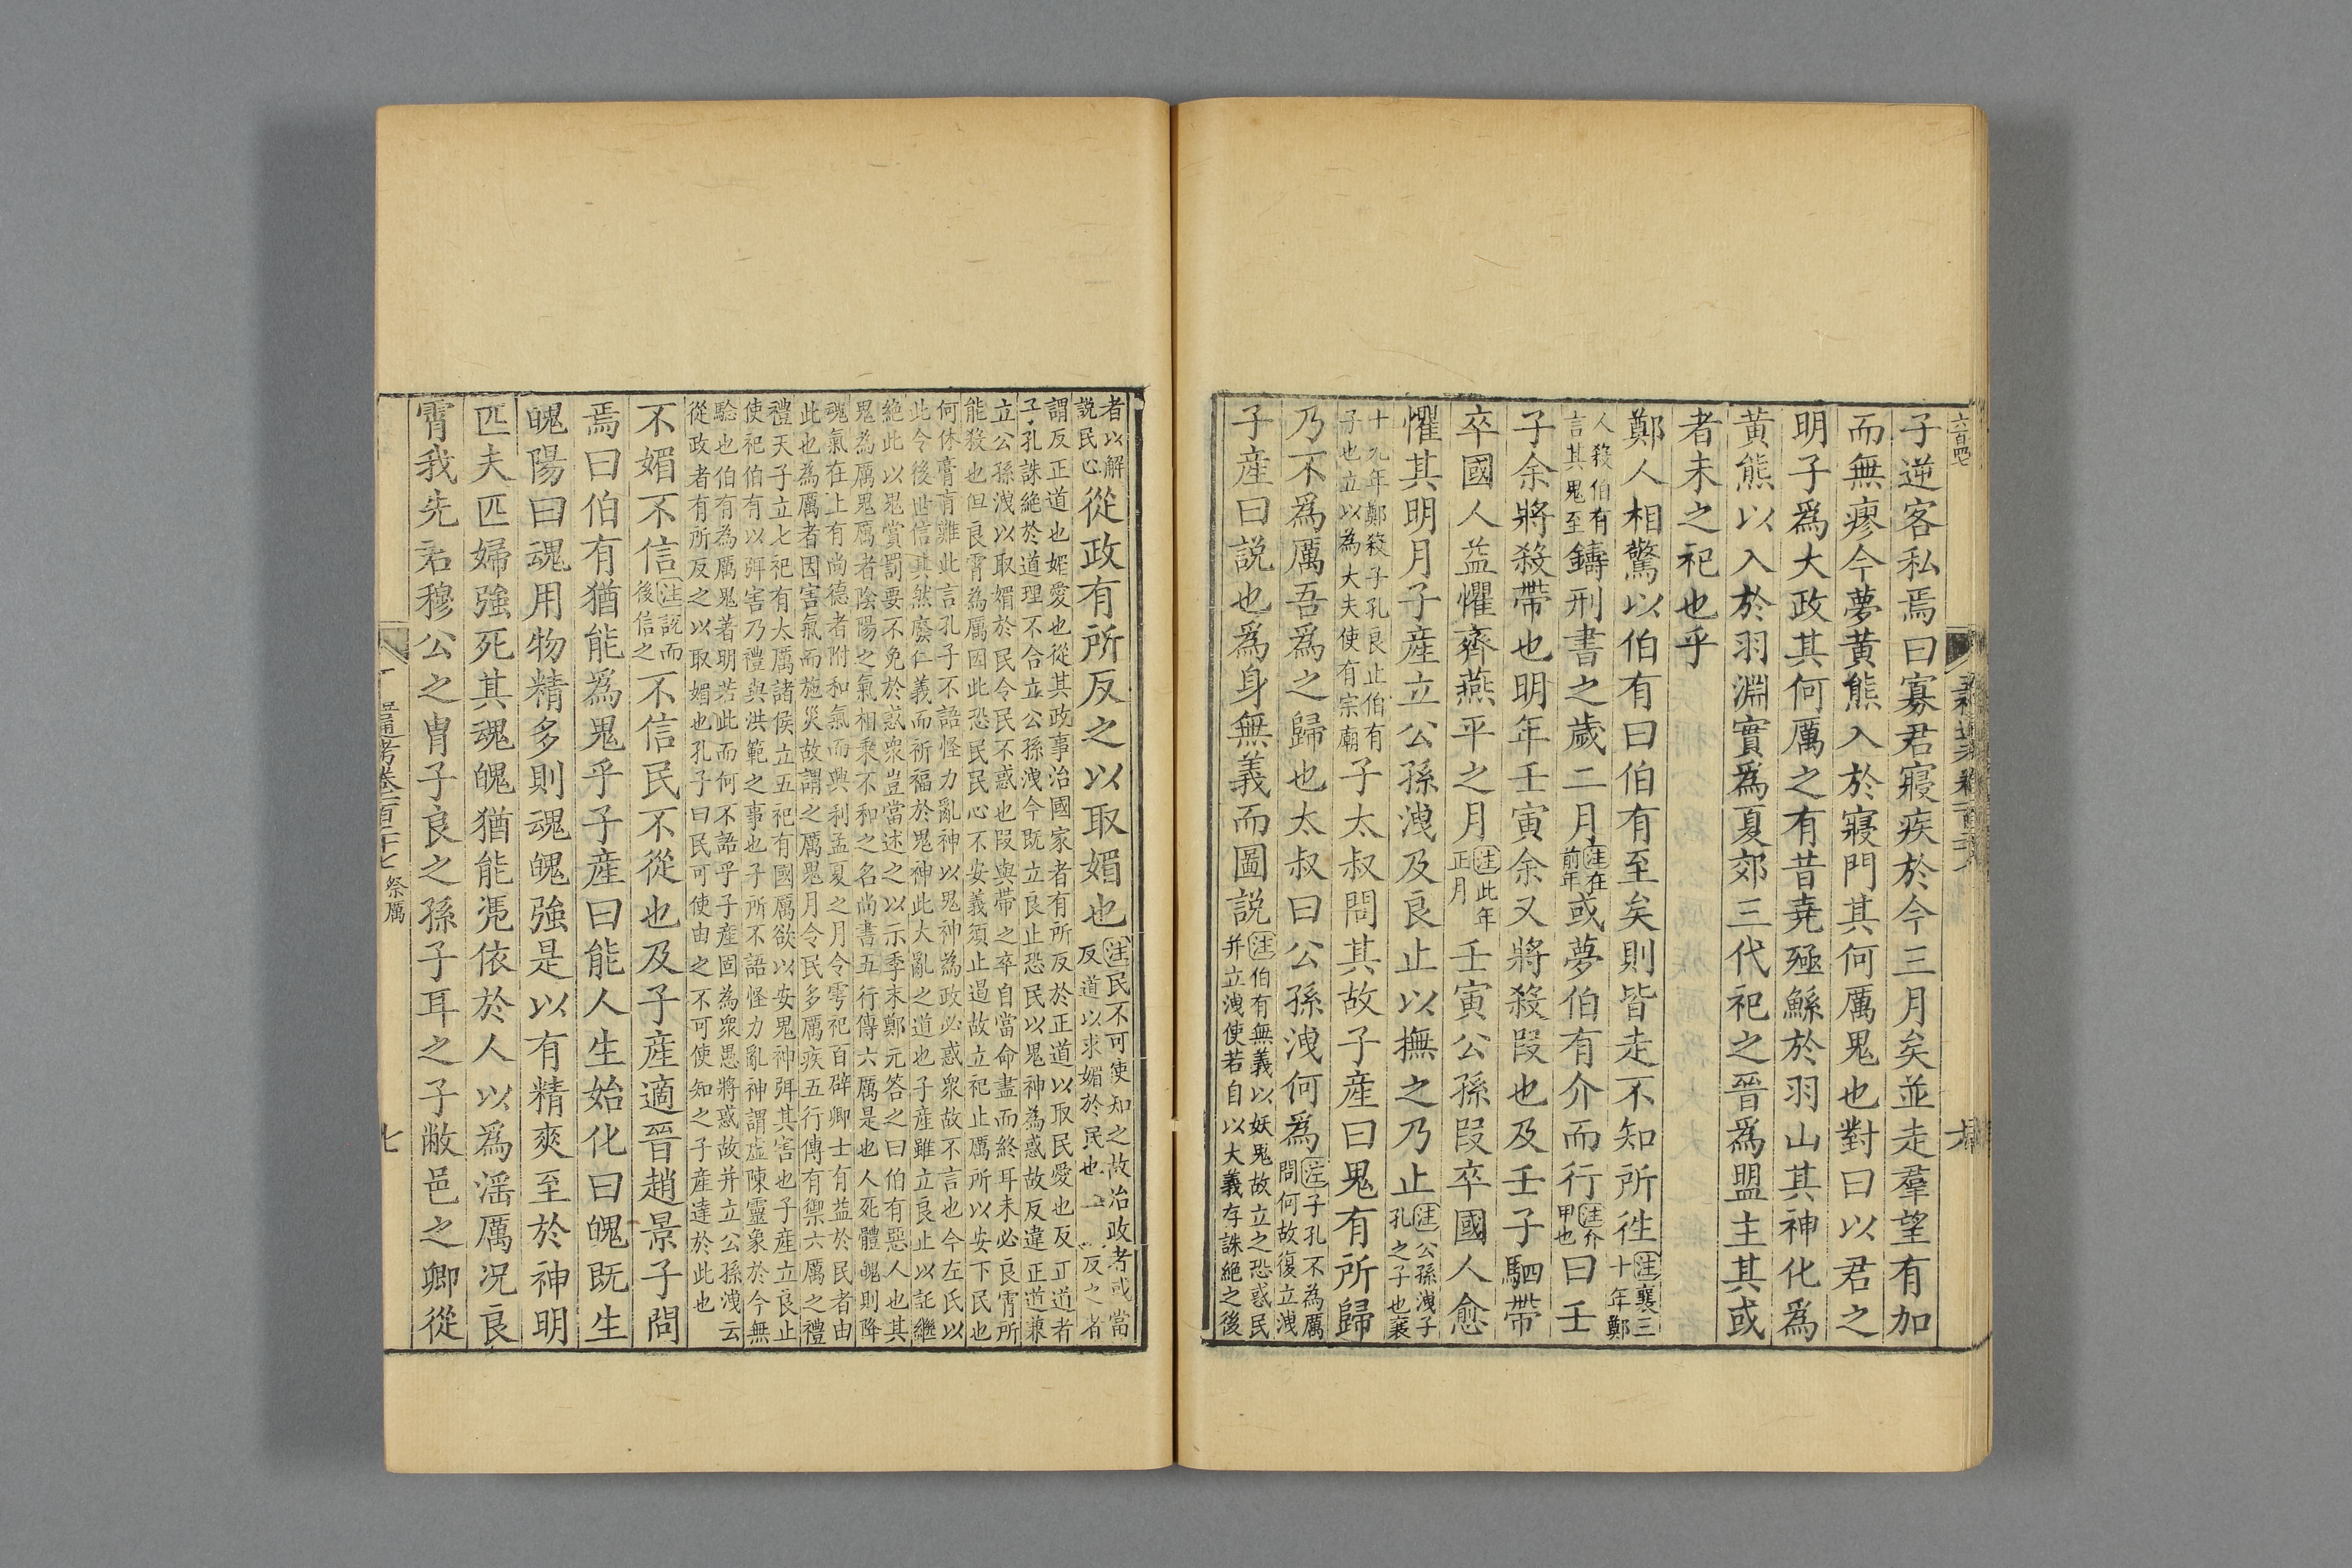 子逆客私焉曰寡君寢疾於今三月矣並走羣望有加
而無瘳今夢黃熊入於寢門其何厲鬼也對曰以君之
明子爲大政其何厲之有昔堯殛鯀於羽山其神化爲
黃熊以入於羽淵實爲夏郊三代祀之晉爲盟主其或
者未之祀也乎
鄭人相驚以伯有曰伯有至矣則皆走不知所徃注襄三十年鄭
人殺伯有言其鬼至鑄刑書之歲二月注在前年或夢伯有介而行注介甲也曰壬
子余將殺帶也明年壬寅余又將殺段也及壬子駟帶
卒國人益懼齊燕平之月注此年正月壬寅公孫段卒國人愈
懼其明月子產立公孫洩及良止以撫之乃止注公孫洩子孔之子也襄
十九年鄭殺子孔良止伯有子也立以為大夫使有宗廟子太叔問其故子產曰鬼有所歸
乃不爲厲吾爲之歸也太叔曰公孫洩何爲注子孔不為厲問何故復立洩
子產曰說也爲身無義而圖說注伯有無義以妖鬼故立之恐惑民并立洩使若自以大義存誅絕之後
者以解說民心從政有所反之以取媚也注民不可使知之故治政者或當反道以求媚於民也
謂反正道也媚愛也從其政事治國家者有所反於正道以取民愛也反正道者
子孔誅絕於道理不合立公孫洩今既立良止恐民以鬼神為惑故反違正道兼
立公孫洩以取媚於民令民不惑也段與帶之卒自當命盡而終耳未必良霄所
能殺也但良霄為厲因此恐民民心不安義須止遏故立祀止厲所以安下民也
何休膏肓難此言孔子不語怪力亂神以鬼神為政必惑衆故不言也今左氏以
此令後世信其然廢仁義而祈福於鬼神此大亂之道也子產雖立良止以託繼
絕此以鬼賞罰要不免於惑衆豈當述之以示季末鄭元答之曰伯有惡人也其
鬼為厲鬼厲者陰陽之氣相乘不和之名尚書五行傳六厲是也人死體魄則降
魂氣在上有尚德者附和氣而興利孟夏之月令雩祀百辟卿士有益於民者由
此也為厲者因害氣而施災故謂之厲鬼月令民多厲疾五行傳有禦六厲之禮
禮天子立七祀有太厲諸侯立五祀有國厲欲以安鬼神弭其害也子產立良止
使祀伯有以弭害乃禮與洪範之事也子所不語怪力亂神謂虛陳靈象於今無
驗也伯有為厲鬼著明若此而何不語乎子產固為衆愚將惑故并立公孫洩云
從政者有所反之以取媚也孔子曰民可使由之不可使知之子產達於此也
不媚不信注說而後信之不信民不從也及子產適晉趙景子問
焉曰伯有猶能爲鬼乎子產曰能人生始化曰魄既生
魄陽曰魂用物精多則魂魄強是以有精爽至於神明
匹夫匹婦強死其魂魄猶能憑依於人以爲淫厲況良
霄我先君穆公之胄子良之孫子耳之子敝邑之卿從
通考卷一百二十七 祭厲
七